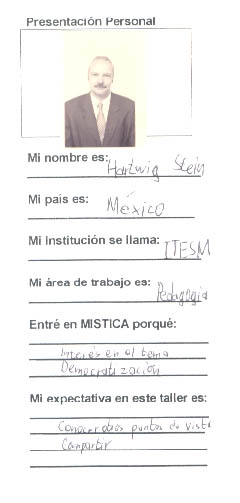 Presentación Personal
Mi nombre es: Hartwig Stein
Mi país es: México
Mi institución se llama: ITESM
Mi área de trabajo es: Pedagogia
Entré en MISTICA porqué:
Interés en el tema
Democratización
Mi expectativa en este taller es:
Conocer otros puntos de vista
Compartir